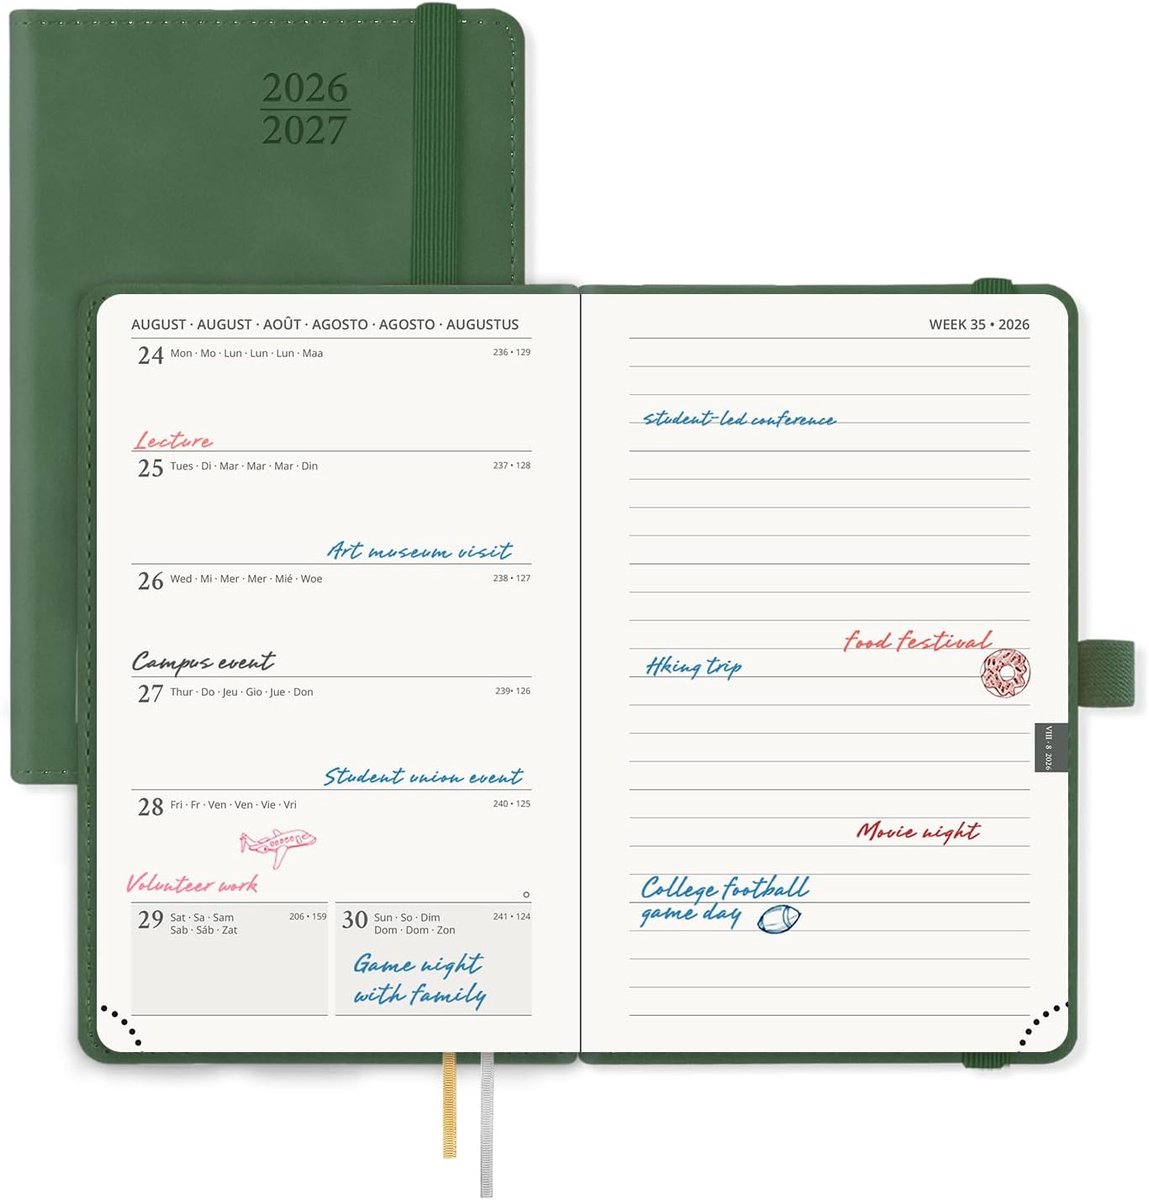 2026
2027
AUGUST · AUGUST · AOÛT · AGOSTO · AGOSTO · AUGUSTUS
24 Mon · Mo · Lun · Lun · Lun · Maa 236 • 129
Lecture
25 Tues · Di · Mar · Mar · Mar · Din 237 • 128
Art museum visit
26 Wed · Mi · Mer · Mer · Mié · Woe 238 • 127
Campus event
27 Thur · Do · Jeu · Gio · Jue · Don 239• 126
Student union event
28 Fri · Fr · Ven · Ven · Vie · Vri 240 • 125
Volunteer work
29 Sat · Sa · Sam 206 • 159
Sab · Sáb · Zat
30 Sun · So · Dim 241 • 124
Dom · Dom · Zon
Game night
with family
WEEK 35 • 2026
student-led conference
food festival
Hking trip
VIII · 8 2026
Movie night
College football
game day